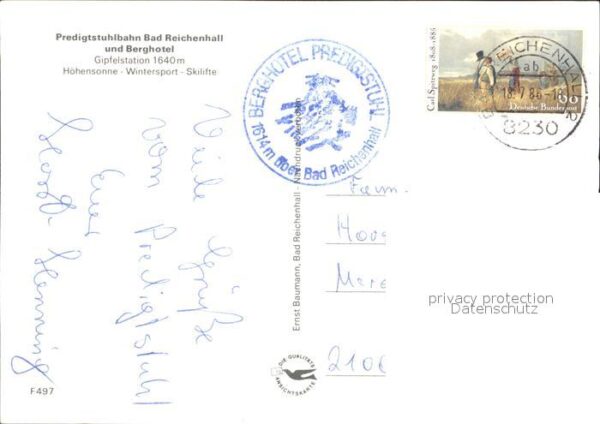 Predigtstuhlbahn Bad Reichenhall
und Berghotel
Gipfelstation 1640 m
Höhensonne - Wintersport - Skilifte
Viele Grüße
vom Predigtstuhl
Euer
Horst Henning
F497
BERGHOTEL PREDIGTSTUHL
1614 m über Bad Reichenhall
Ernst Baumann, Bad Reichenhall - Nachdruck verboten
DIE QUALITÄTS
ANSICHTSKARTE
Carl Spitzweg 1808-1885
60
Deutsche Bundespost
REICHENHALL
ab
8230
Fam.
2106
privacy protection
Datenschutz